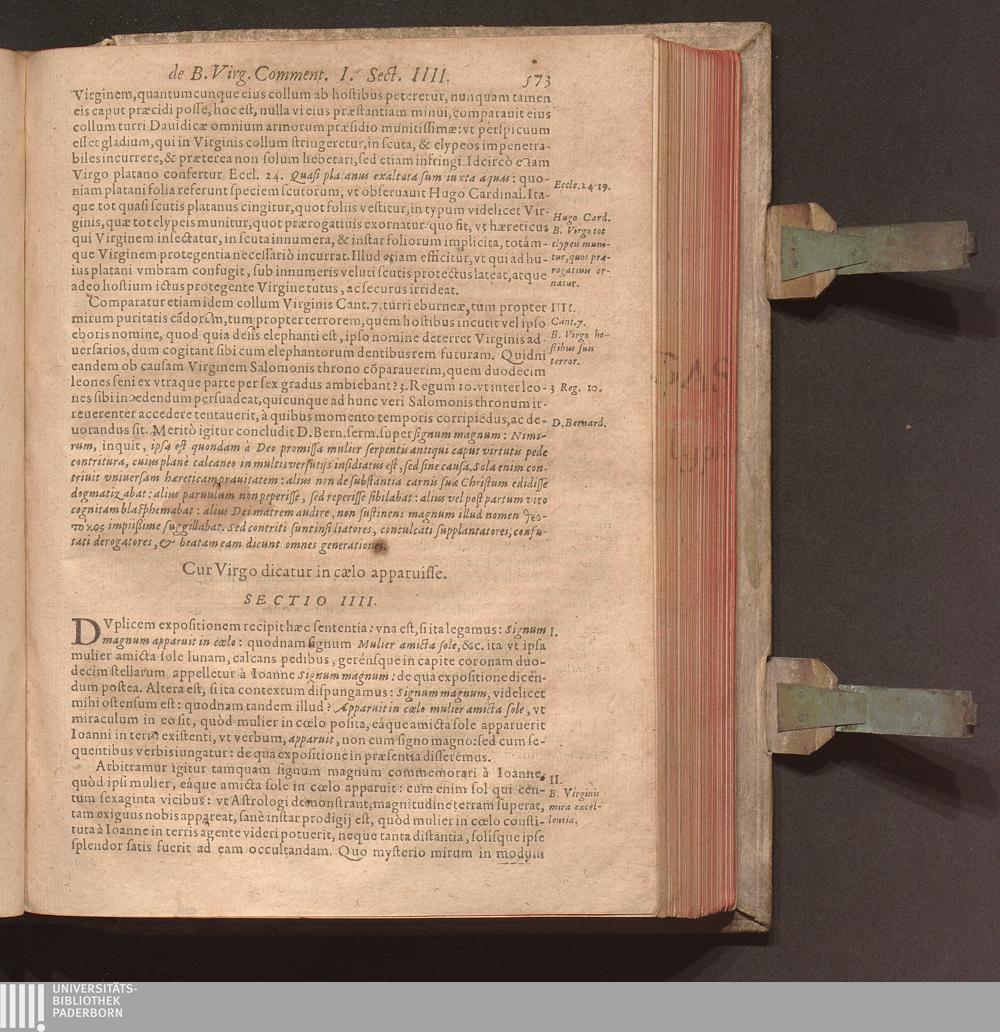 de B. Virg. Comment. I. Sect. IIII.
573
Virginem, quantumcunque eius collum ab hostibus peteretur, nunquam tamen
eis caput præcidi posse, hoc est, nulla vi eius præstantiam minui, comparauit eius
collum turri Dauidicæ omnium armorum præsidio munitissimæ: vt perspicuum
esset gladium, qui in Virginis collum stringeretur, in scuta, & clypeos impenetra-
biles incurrere, & præterea non solum hebetari, sed etiam infringi. Idcircò etiam
Virgo platano confertur Eccl. 24. Quasi platanus exaltata sum iuxta aquas: quo-
niam platani folia referunt speciem scutorum, vt obseruauit Hugo Cardinal. Ita-
que tot quasi scutis platanus cingitur, quot foliis vestitur, in typum videlicet Vir-
ginis, quæ tot clypeis munitur, quot prærogatiuis exornatur: quo fit, vt hæreticus
qui Virginem insectatur, in scuta innumera, & instar foliorum implicita, totám-
que Virginem protegentia necessariò incurrat. Illud etiam efficitur, vt qui ad hu-
ius platani vmbram confugit, sub innumeris veluti scutis protectus lateat, atque
adeo hostium ictus protegente Virgine tutus, ac securus irrideat.
Eccle. 24 19.
Hugo Card.
B. Virgo tot
clypeis muni-
tur, quot præ-
rogatiuis or-
natur.
Comparatur etiam idem collum Virginis Cant. 7. turri eburneæ, tum propter
mirum puritatis cādorem, tum propter terrorem, quem hostibus incutit vel ipso
eboris nomine, quod quia dens elephanti est, ipso nomine deterret Virginis ad-
uersarios, dum cogitant sibi cum elephantorum dentibus rem futuram. Quidni
eandem ob causam Virginem Salomonis throno cōparauerim, quem duodecim
leones seni ex vtraque parte per sex gradus ambiebant? 3. Regum 10. vt inter leo-
nes sibi incedendum persuadeat, quicunque ad hunc veri Salomonis thronum ir-
reuerenter accedere tentauerit, à quibus momento temporis corripiēdus, ac de-
uorandus sit. Meritò igitur concludit D. Bern. serm. super signum magnum: Nimi-
rum, inquit, ipsa est quondam à Deo promissa mulier serpentis antiqui caput virtutis pede
contritura, cuius planè calcaneo in multis versutijs insidiatus est, sed sine causa. Sola enim con-
triuit vniuersam hæreticam prauitatem: alius non de substantia carnis suæ Christum edidisse
dogmatizabat: alius paruulum non peperisse, sed reperisse sibilabat: alius vel post partum viro
cognitam blasphemabat: alius Dei matrem audire, non sustinens magnum illud nomen θεο-
τόκος impiißime suggillabat. Sed contriti sunt insidiatores, conculcati supplantatores, confu-
tati derogatores, & beatam eam dicunt omnes generationes.
IIII.
Cant. 7.
B. Virgo ho-
stibus suis
terror.
3 Reg. 10.
D. Bernard.
Cur Virgo dicatur in cælo apparuisse.
SECTIO IIII.
DVplicem expositionem recipit hæc sententia: vna est, si ita legamus: Signum
magnum apparuit in cælo: quodnam signum Mulier amicta sole, &c. ita vt ipsa
mulier amicta sole lunam, calcans pedibus, gerénsque in capite coronam duo-
decim stellarum appelletur à Ioanne Signum magnum: de qua expositione dicen-
dum postea. Altera est, si ita contextum dispungamus: Signum magnum, videlicet
mihi ostensum est: quodnam tandem illud? Apparuit in cælo mulier amicta sole, vt
miraculum in eo sit, quòd mulier in cœlo posita, eáque amicta sole apparuerit
Ioanni in terris existenti, vt verbum, apparuit, non cum signo magno: sed cum se-
quentibus verbis iungatur: de qua expositione in præsentia disseremus.
I.
Arbitramur igitur tamquam signum magnum commemorari à Ioanne,
quòd ipsi mulier, eáque amicta sole in cœlo apparuit: cùm enim sol qui cen-
tum sexaginta vicibus: vt Astrologi demonstrant, magnitudine terram superat,
tam exiguus nobis appareat, sanè instar prodigij est, quòd mulier in cœlo consti-
tuta à Ioanne in terris agente videri potuerit, neque tanta distantia, solisque ipse
splendor satis fuerit ad eam occultandam. Quo mysterio mirum in modum
II.
B. Virginis
mira excel-
lentia.
UNIVERSITÄTS-
BIBLIOTHEK
PADERBORN